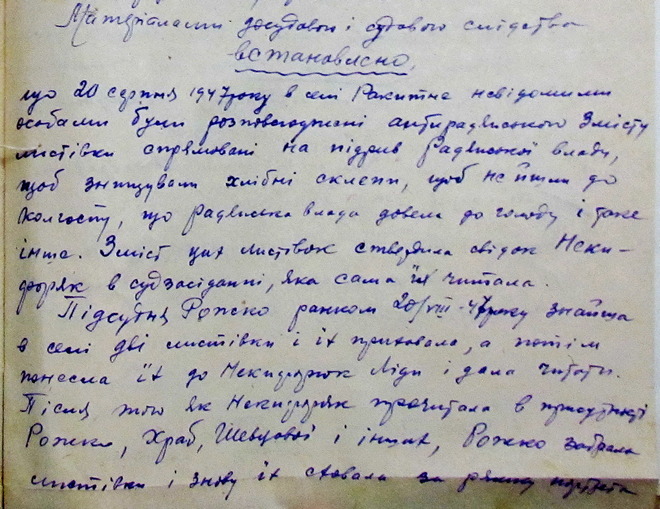 Матеріалами досудового і судового слідства
встановлено,
що 20 серпня 1947 року в селі Ракитне невідомими
особами були розповсюджені антирадянського змісту
листівки спрямовані на підрив Радянської влади,
щоб знищували хлібні склепи, щоб не йшли до
колгоспу, що радянська влада довела до голоду і таке
інше. Зміст цих листівок ствердила свідок Неки-
форяк в судзасіданні, яка сама їх читала.
Підсудня Рожко ранком 20/VIII-47 року знайшла
в селі дві листівки і їх приховала, а потім
понесла їх до Некифорюк Ліди і дала читати.
Після того як Некифоряк прочитала в присутності
Рожко, Храб, Шевцової і інших, Рожко забрала
листівки і знову їх сховала за рямку портрета